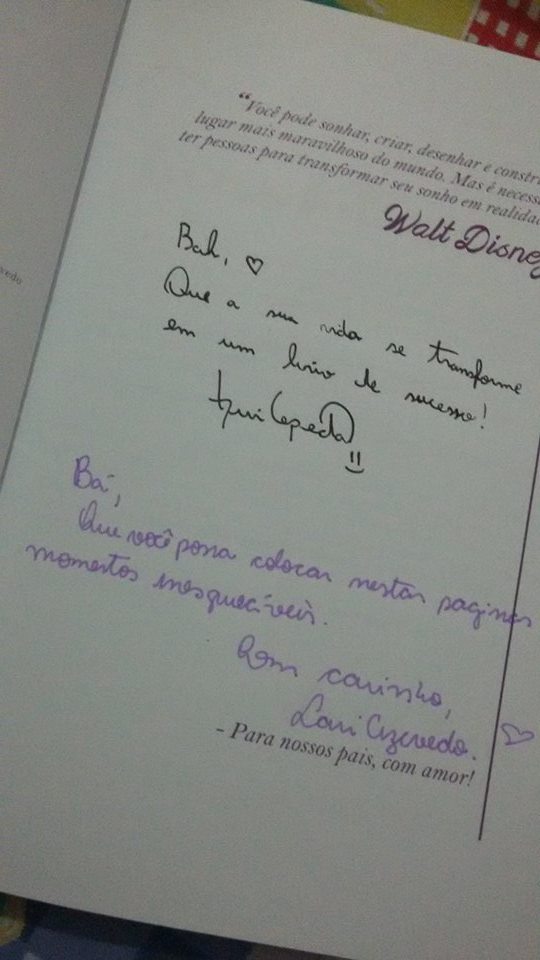 "Você pode sonhar, criar, desenhar e constru
lugar mais maravilhoso do mundo. Mas é necess
ter pessoas para transformar seu sonho em realida
Walt Disney
Bah, ♡
Que a sua vida se transforme
em um livro de sucesso!
Cepeda
Bá,
Que você possa colocar nestas paginas
momentos inesquecíveis.
Com carinho,
Lari Azevedo.
- Para nossos pais, com amor!